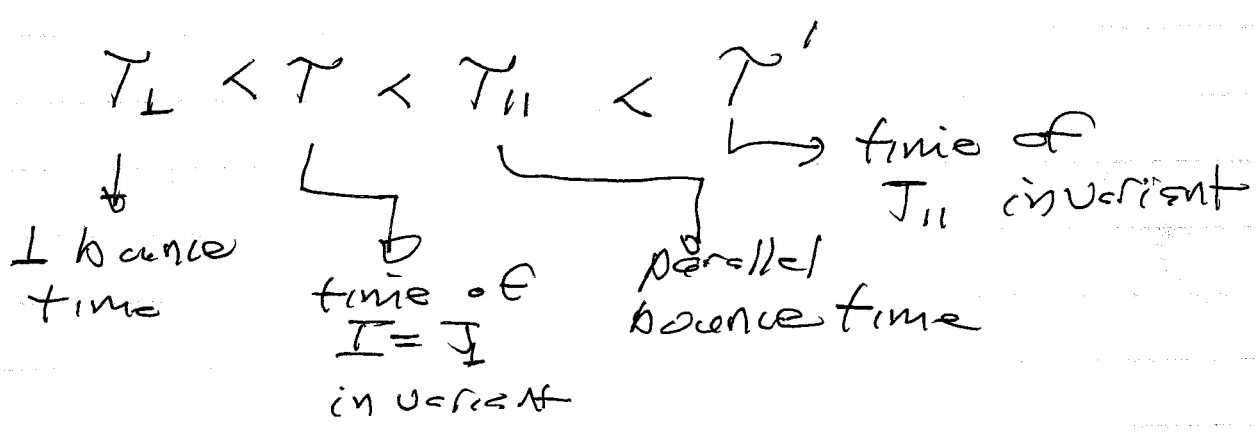 τ⊥ < τ < τ|| < τ'
time of
J|| invariant
⊥ bounce
time
time of
I = J⊥
invariant
parallel
bounce time